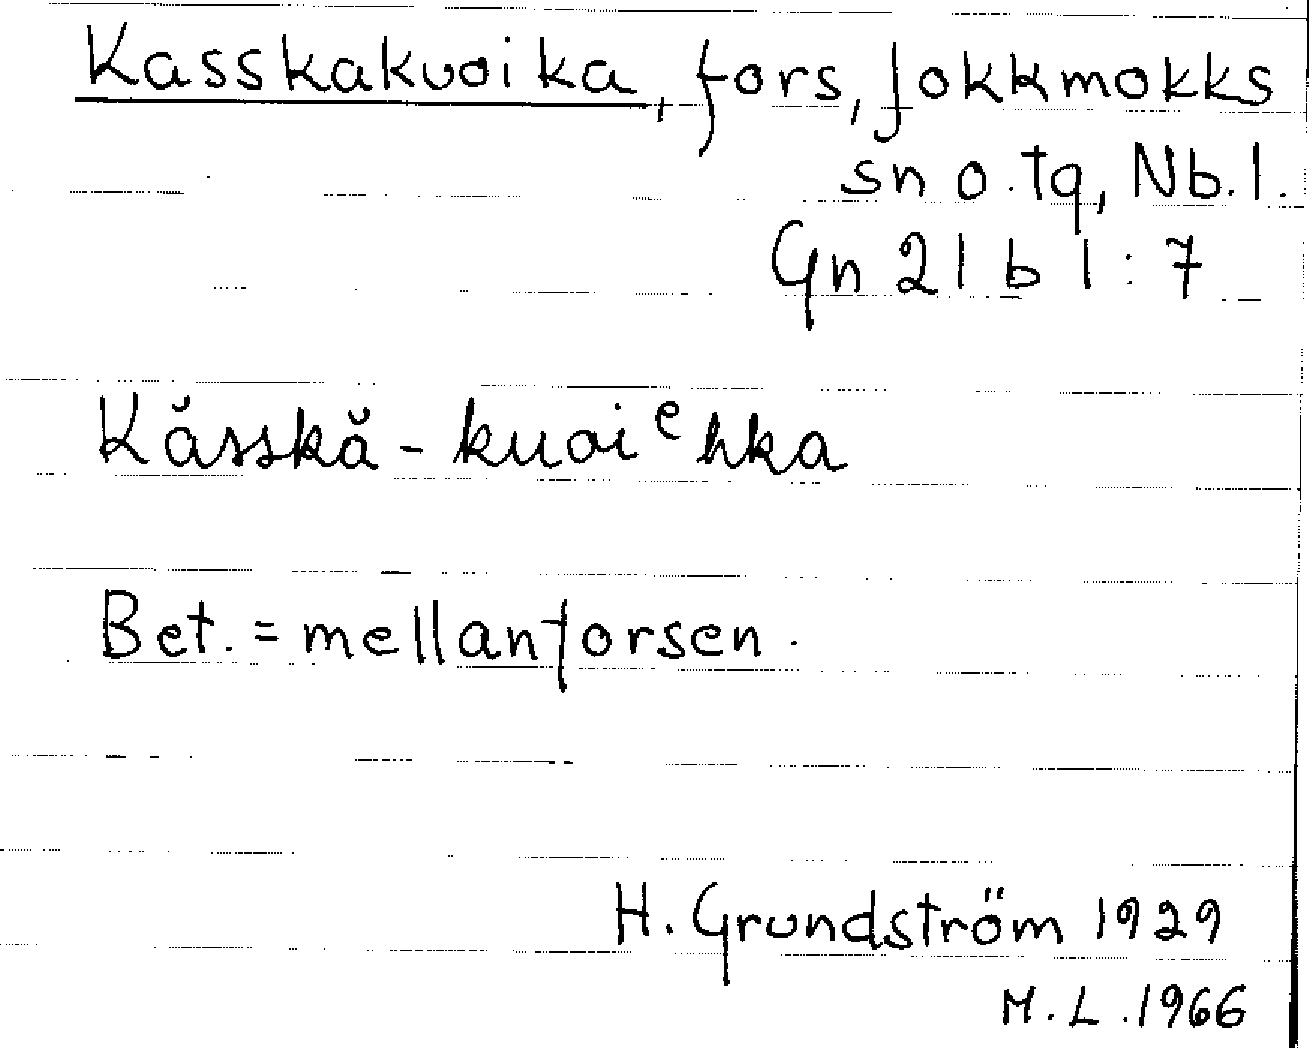 Kasskakuoika, fors, Jokkmokks
sn o. tq, Nb. l.
Gn 21 b 1 : 7
Kăsskă - kuoiᵉhka
Bet. = mellanforsen.
H. Grundström 1929
M. L. 1966